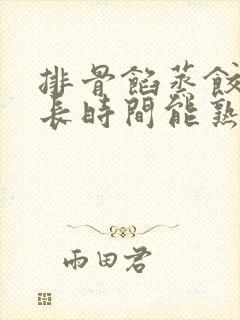 排骨餡蒸餃
長時間能熟
雨田君